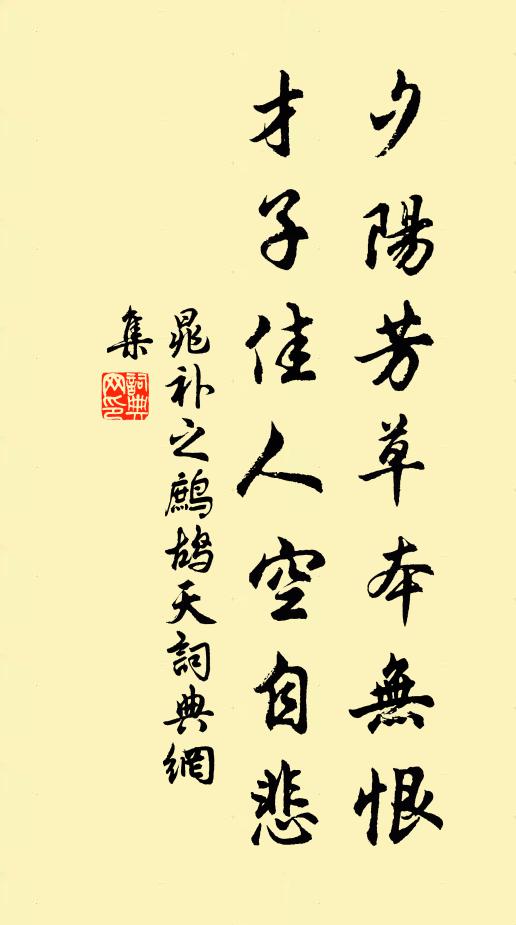 夕陽芳草本無恨
才子佳人空自悲
晁补之鷓鴣天詞典網
集
詞典
网印